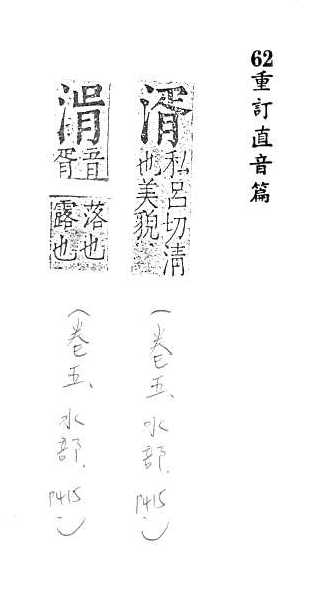 62重訂直音篇
湑私呂切清也美貌
(卷五、水部. P415)
渭音胥落也露也
(卷五、水部. P415)